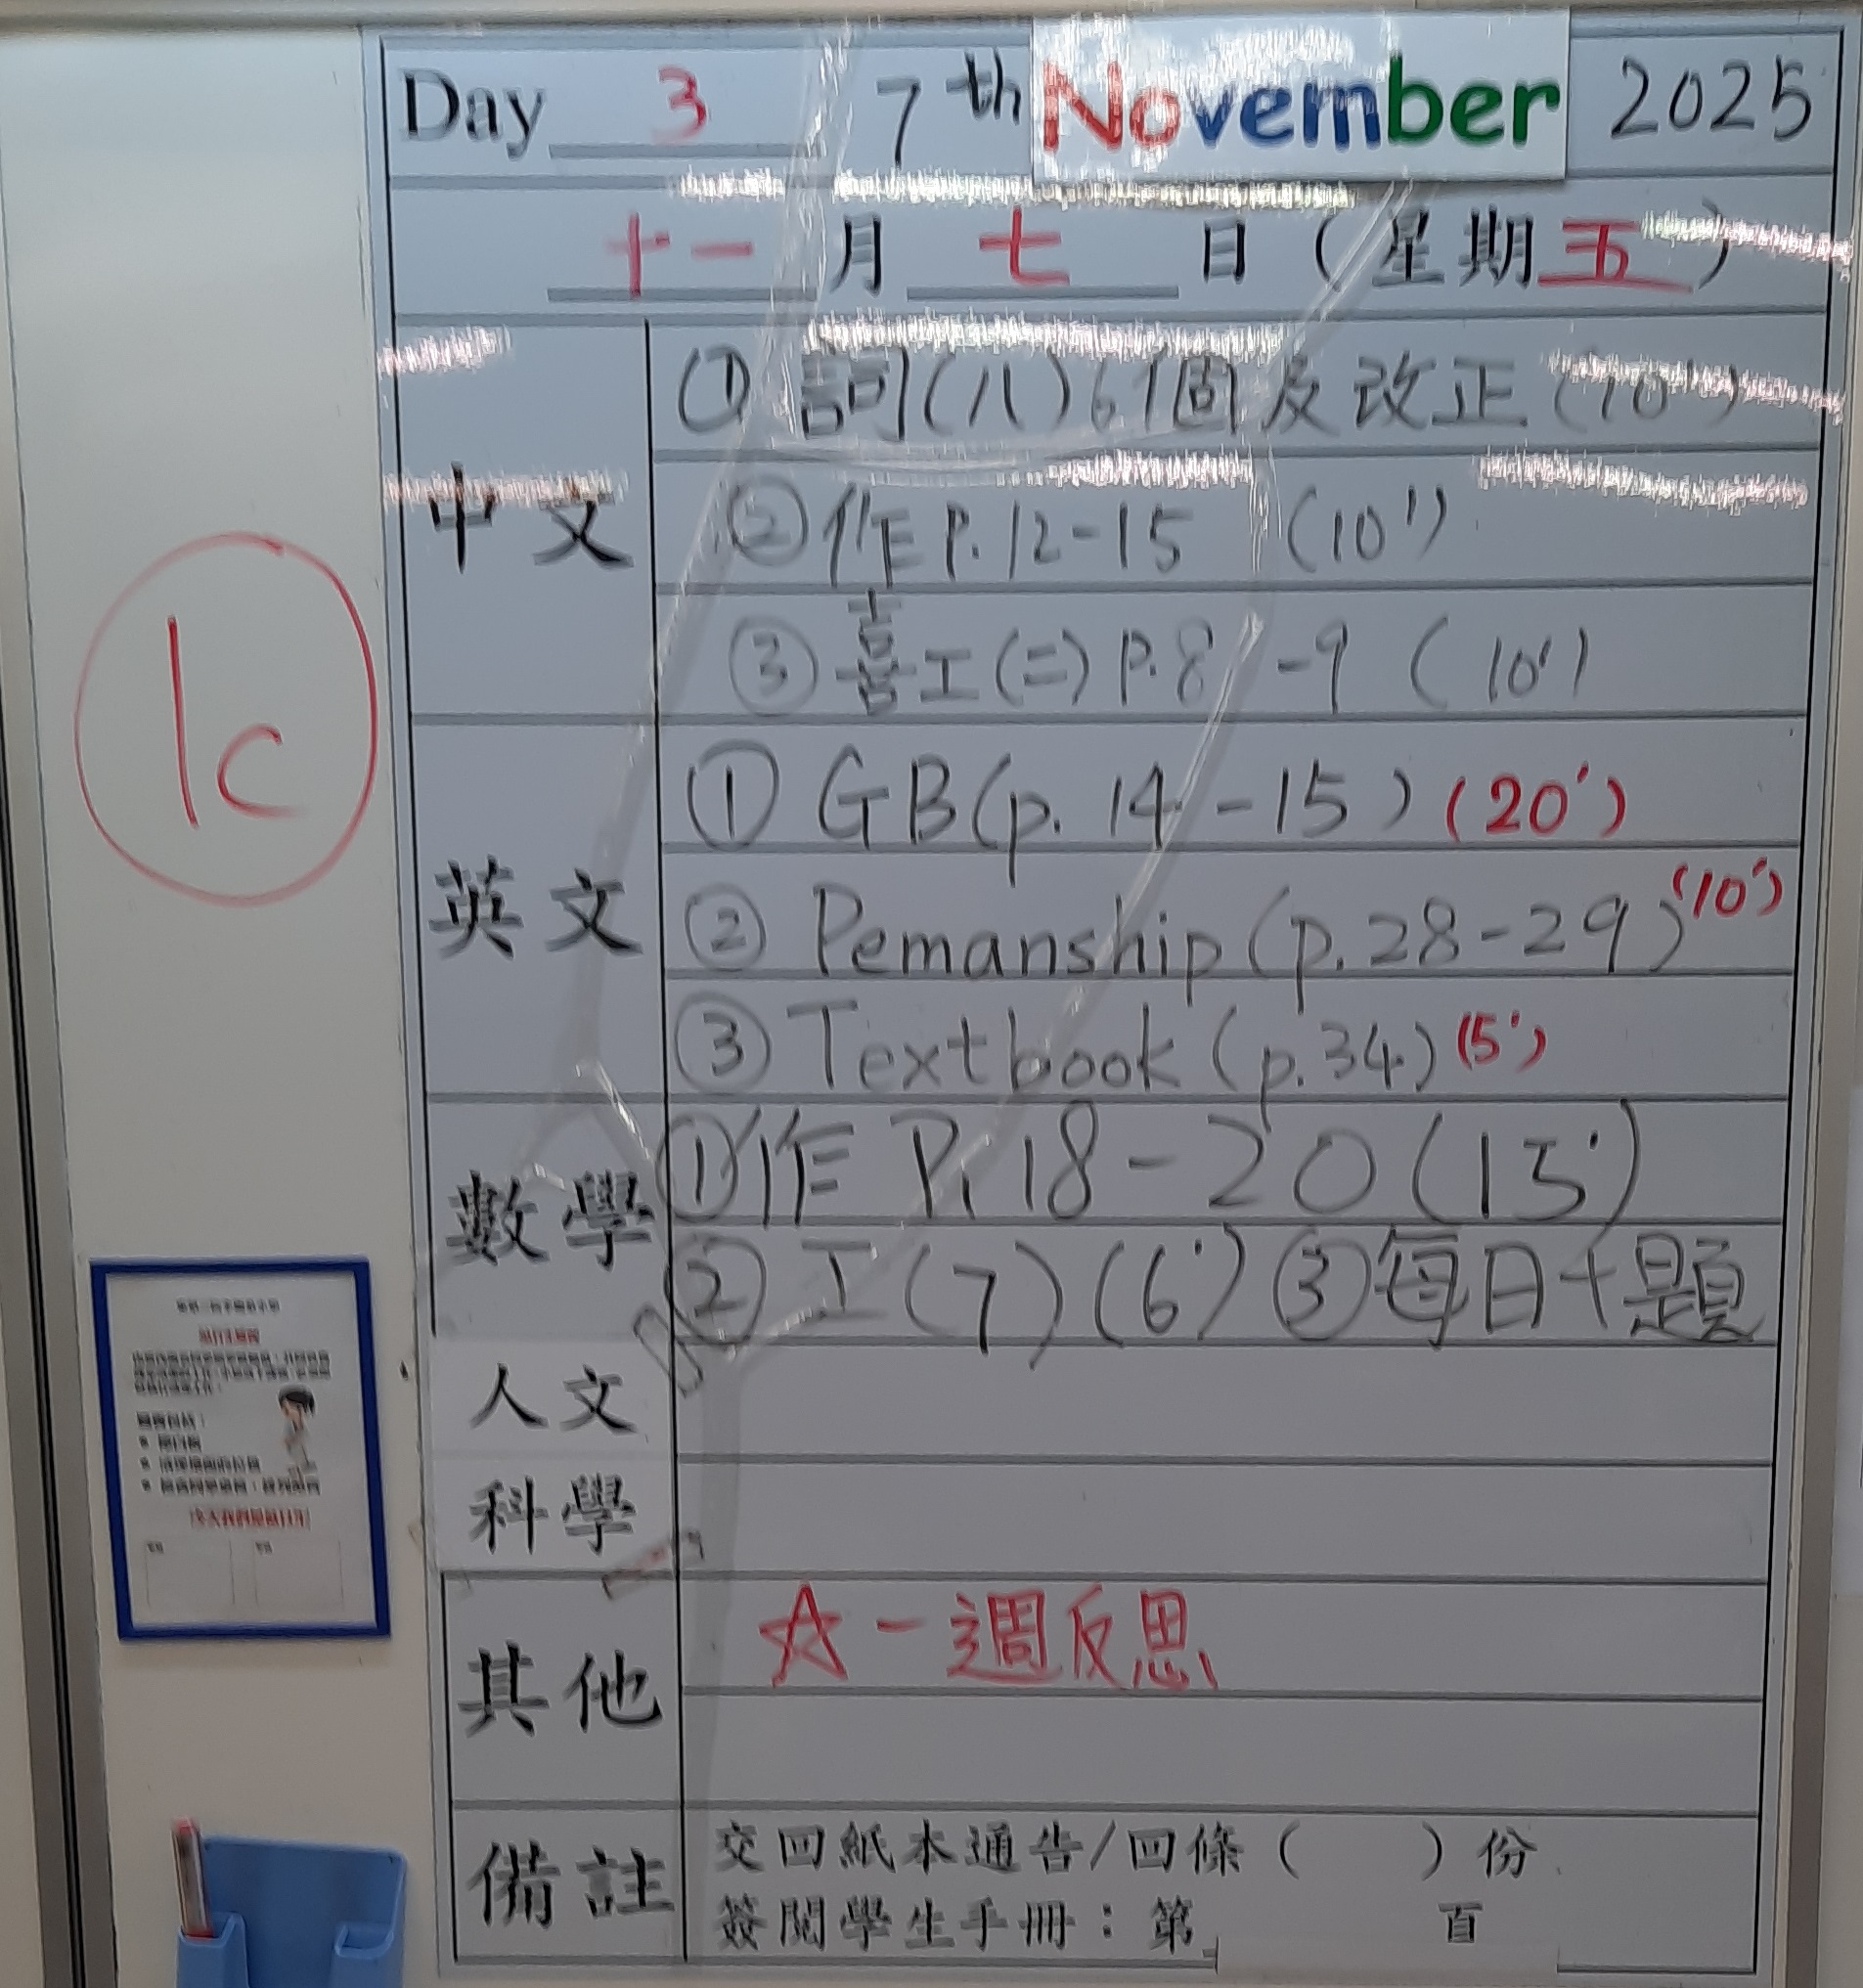 Day 3 7th November 2025
十一 月 七 日 (星期五)
中文
① 詞(八)6個及改正 (10')
② 作P.12-15 (10')
③ 喜工(二)P.8-9 (10')
1c
英文
① GB(p.14-15) (20')
② Pemanship(p.28-29) (10')
③ Textbook(p.34) (5')
數學
① 作 P.18-20(15')
② 工(7)(6') ③每日十題
人文
科學
其他
☆一週反思
備註
交回紙本通告/回條( )份
簽閱學生手冊:第 頁